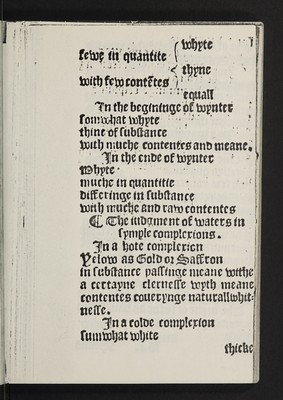 whyte
fewe in quantite
thyne
with few contētes
equall
In the begininge of wynter
somwhat whyte
thine of substance
with muche contentes and meane.
In the ende of wynter
Whyte
muche in quantitie
differinge in substance
with muche and raw contentes
¶ The iudgment of waters in
symple complexions.
In a hote complexicn
Yelow as Gold or Saffron
in substance passinge meane withe
a certayne clernesse wyth meane
contentes couerynge naturallwhit=
nesse.
In a colde complexion
sumwhat white
thicke